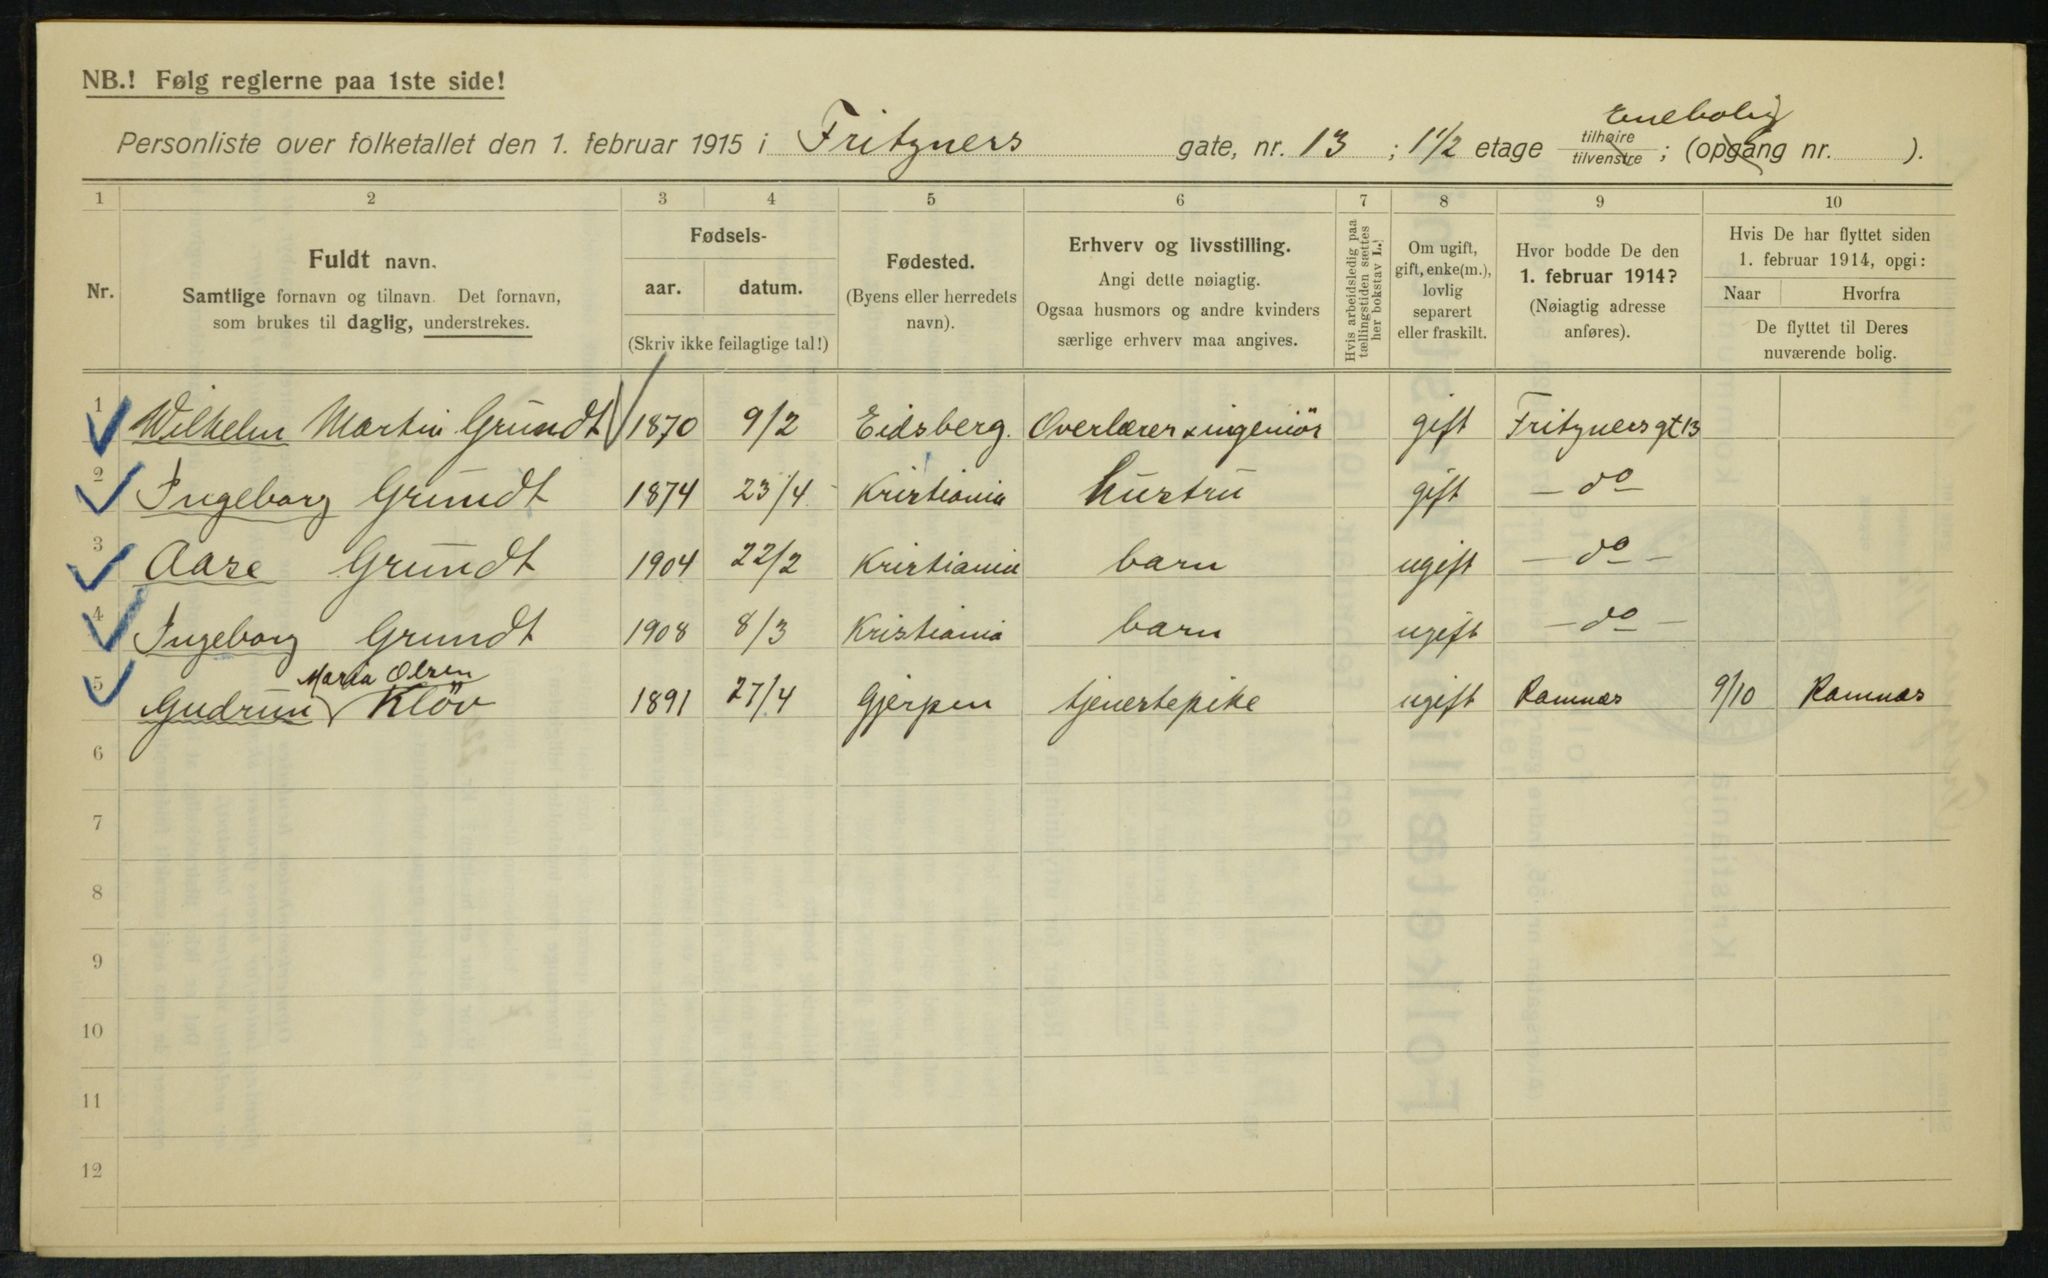 NB.! Følg reglerne paa 1ste side!
Enebolig
Personliste over folketallet den 1. februar 1915 i Fritzners gate, nr. 13 ; 1 1/2 etage tilhøire tilvenstre ; (opgang nr. ).
1 2 3 4 5 6 7 8 9 10
Nr.
Fuldt navn.
Samtlige fornavn og tilnavn. Det fornavn,
som brukes til daglig, understrekes.
Fødsels-
aar. datum.
(Skriv ikke feilagtige tal!)
Fødested.
(Byens eller herredets
navn).
Erhverv og livsstilling.
Angi dette nøiagtig.
Ogsaa husmors og andre kvinders
særlige erhverv maa angives.
Hvis arbeidsledig paa
tællingstiden sættes
her bokstav L.!
Om ugift,
gift, enke(m.),
lovlig
separert
eller fraskilt.
Hvor bodde De den
1. februar 1914?
(Nøiagtig adresse
anføres).
Hvis De har flyttet siden
1. februar 1914, opgi:
Naar Hvorfra
De flyttet til Deres
nuværende bolig.
1 Wilhelm Martin Grundt 1870 9/2 Eidsberg. Overlærer & ingeniör gift Fritzners gt 13
2 Ingeborg Grundt 1874 23/4 Kristiania hustru gift - do -
3 Aase Grundt 1904 22/2 Kristiania barn ugift - do -
4 Ingeborg Grundt 1908 8/3 Kristiania barn ugift - do -
Maria Olsen
5 Gudrun Klöv 1891 27/4 Gjerpen tjenestepike ugift Ramnæs 9/10 Ramnæs
6
7
8
9
10
11
12